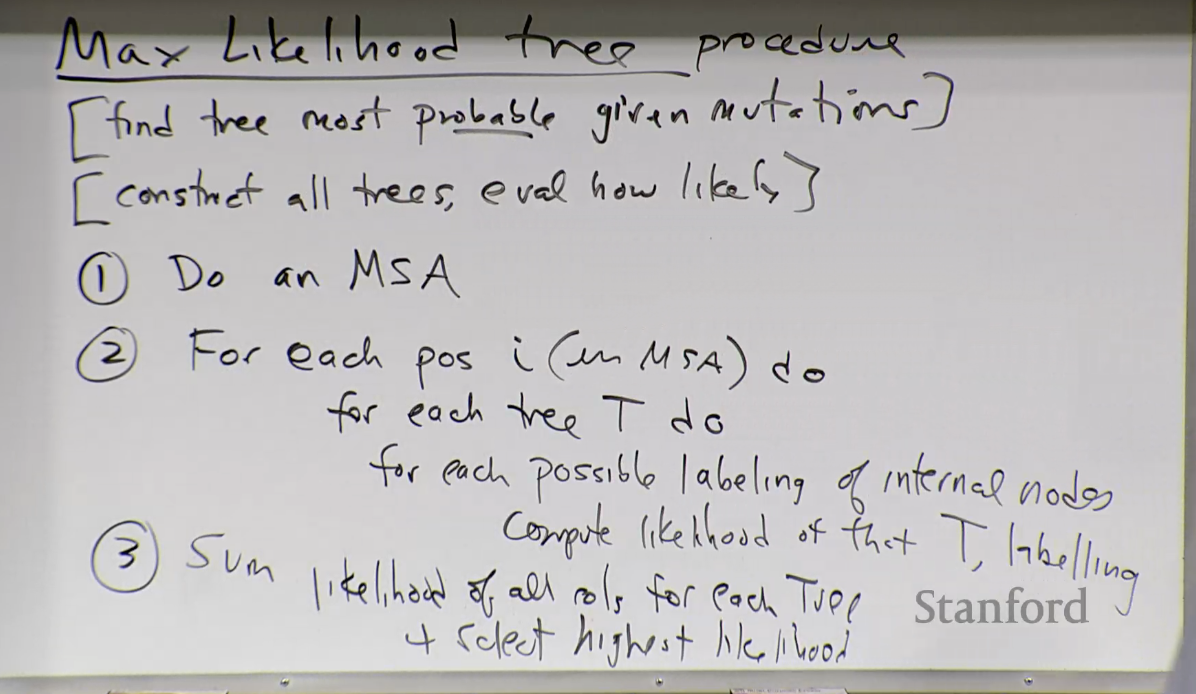 Max Likelihood tree procedure
[find tree most probable given mutations]
[construct all trees, eval how likely]
① Do an MSA
② For each pos i (in MSA) do
for each tree T do
for each possible labeling of internal nodes
Compute likelihood of that T, labelling
③ Sum likelihood of all cols for each Tree
+ select highest likelihood
Stanford